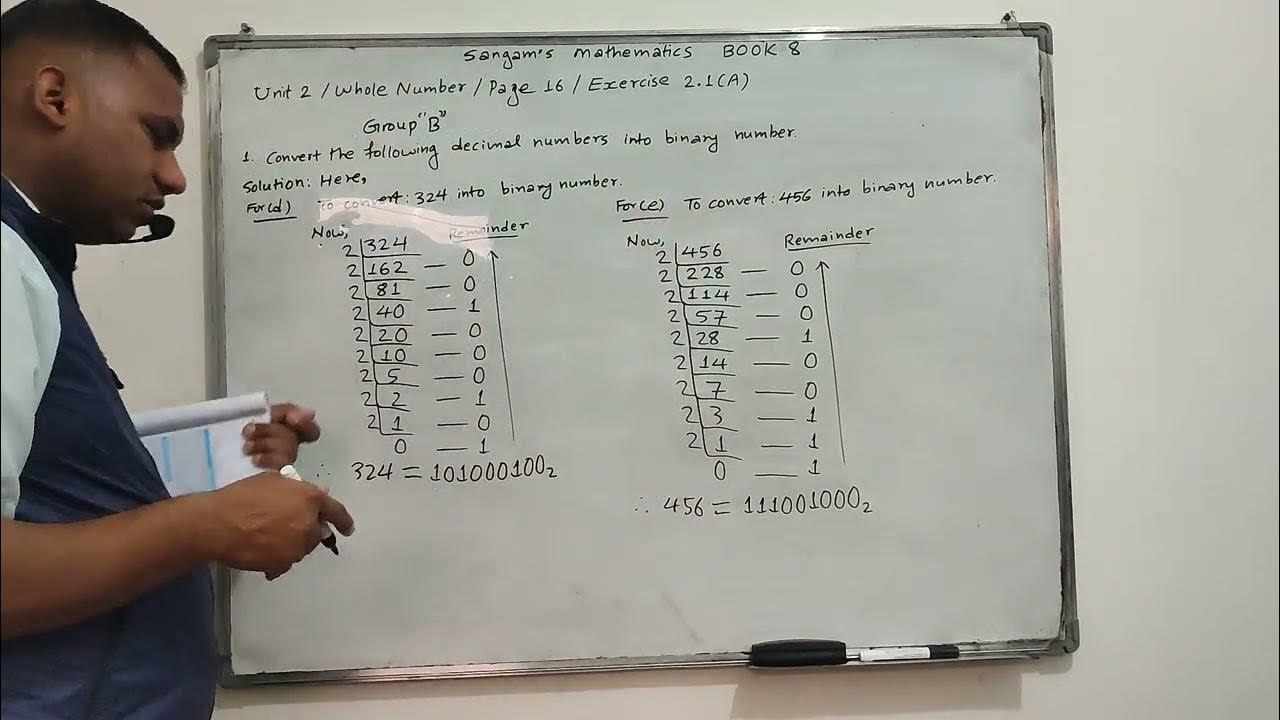 Sangam's Mathematics BOOK 8
Unit 2 / Whole Number / Page 16 / Exercise 2.1(A)
Group "B"
1. Convert the following decimal numbers into binary number.
Solution: Here,
For(d) To convert: 324 into binary number.
Now, Remainder
2 324
2 162 — 0
2 81 — 0
2 40 — 1
2 20 — 0
2 10 — 0
2 5 — 0
2 2 — 1
2 1 — 0
0 — 1
∴ 324 = 101000100₂
For(e) To convert: 456 into binary number.
Now, Remainder
2 456
2 228 — 0
2 114 — 0
2 57 — 0
2 28 — 1
2 14 — 0
2 7 — 0
2 3 — 1
2 1 — 1
0 — 1
∴ 456 = 111001000₂